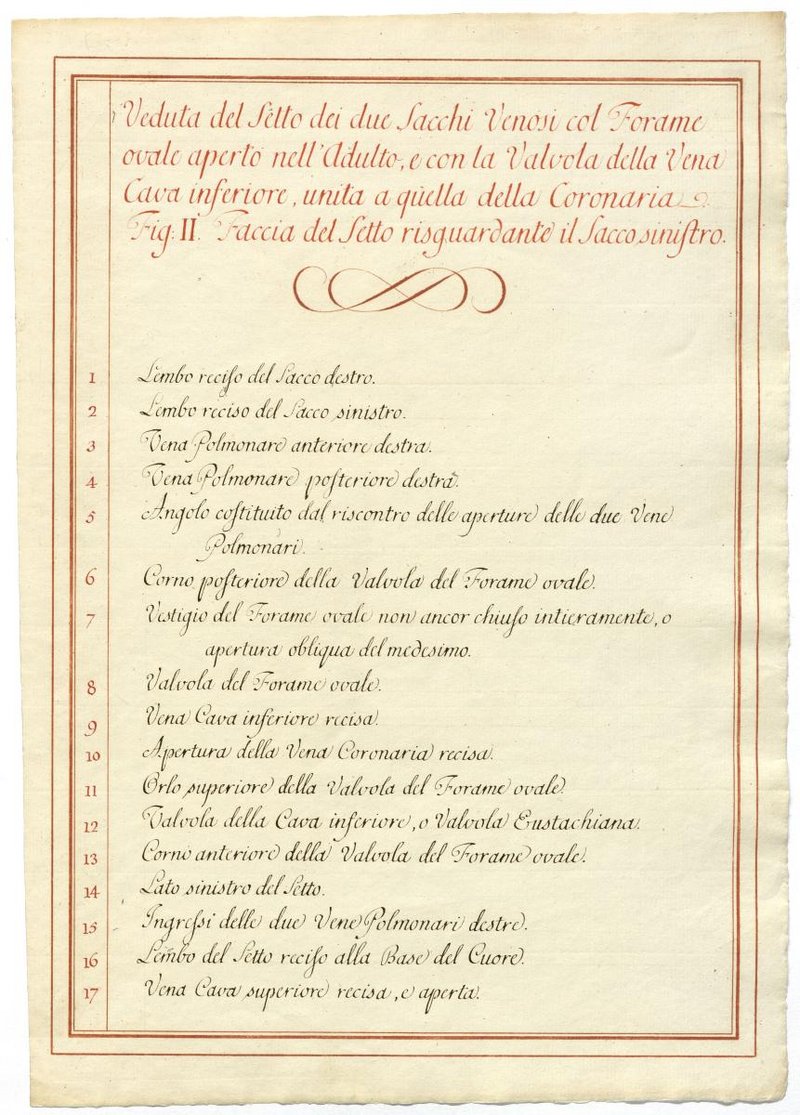 Veduta del Setto dei due Sacchi Venosi col Forame
ovale aperto nell'Adulto, e con la Valvola della Vena
Cava inferiore, unita a quella della Coronaria
Fig: II. Faccia del Setto risguardante il Sacco sinistro.
1 Lembo reciso del Sacco destro.
2 Lembo reciso del Sacco sinistro.
3 Vena Polmonare anteriore destra.
4 Vena Polmonare posteriore destra.
5 Angolo costituito dal riscontro delle aperture delle due Vene
Polmonari.
6 Corno posteriore della Valvola del Forame ovale.
7 Vestigio del Forame ovale non ancor chiuso intieramente, o
apertura obliqua del medesimo.
8 Valvola del Forame ovale.
9 Vena Cava inferiore recisa.
10 Apertura della Vena Coronaria recisa.
11 Orlo superiore della Valvola del Forame ovale.
12 Valvola della Cava inferiore, o Valvola Eustachiana.
13 Corno anteriore della Valvola del Forame ovale.
14 Lato sinistro del Setto.
15 Ingressi delle due Vene Polmonari destre.
16 Lembo del Setto reciso alla Base del Cuore.
17 Vena Cava superiore recisa, e aperta.